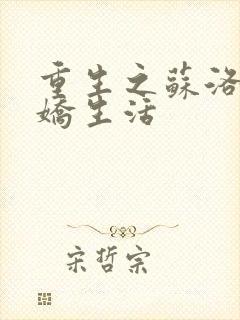 重生之蘇洛
嬌生活
宋哲宗